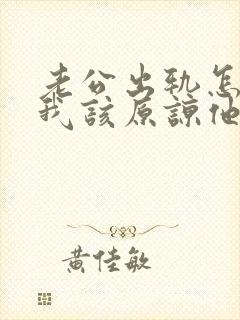 老公出軌怎
我該原諒他
黃佳敏